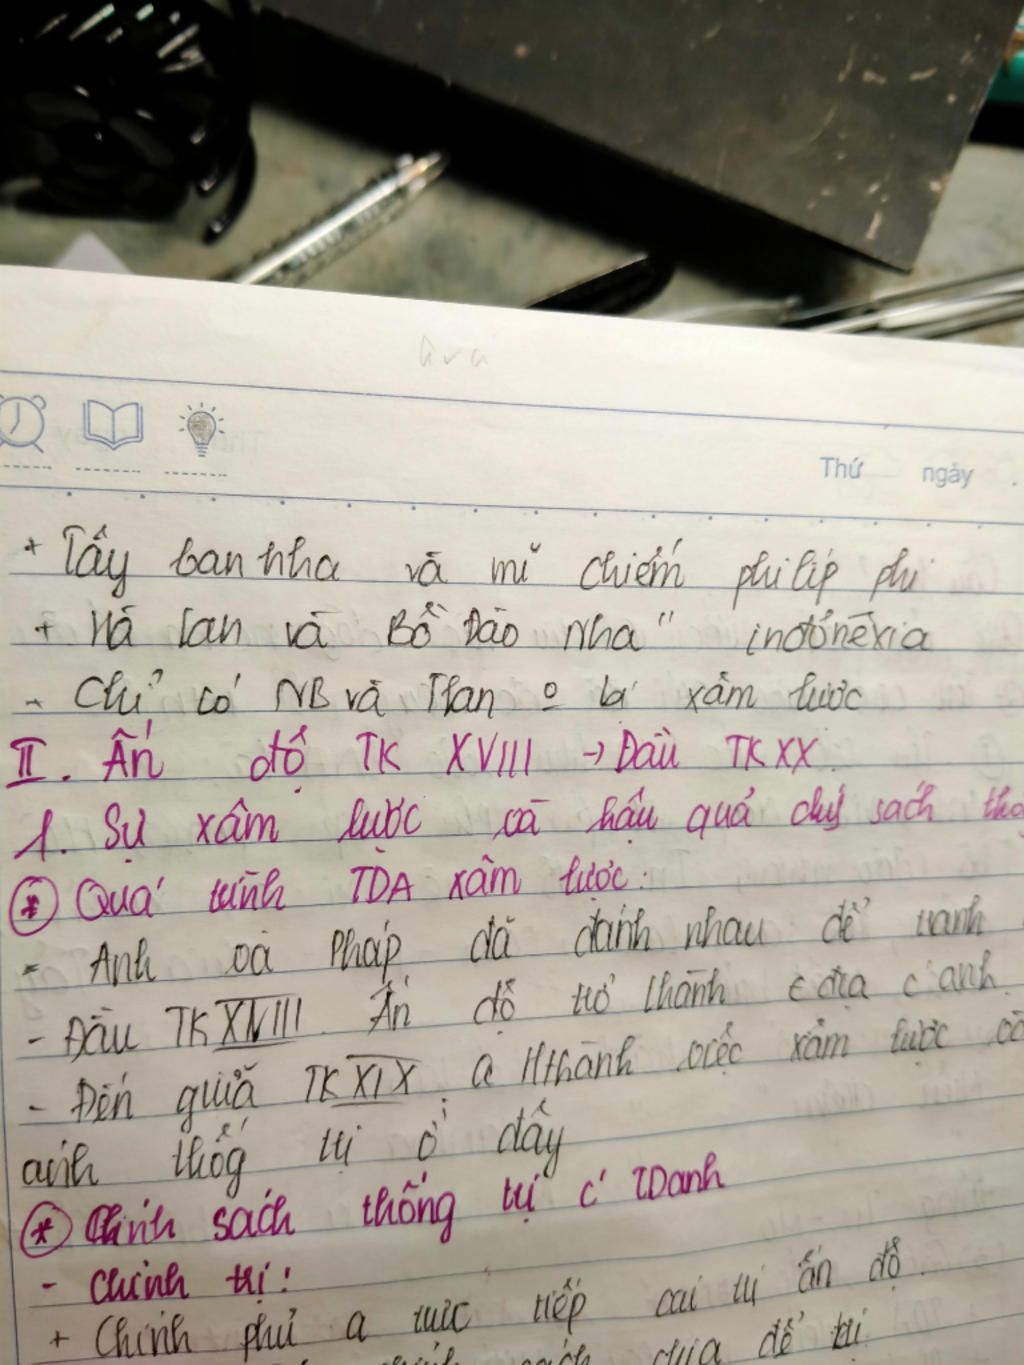 Thứ ngày
+ Tây ban nha và mĩ chiếm philip phi
+ Hà lan và Bồ Đào Nha " inđônêxia
- Chỉ có NB và Tlan o bị xâm lược
II. Ấn độ TK XVIII → Đầu TK XX
1. Sự xâm lược và hậu quả chí sách
* Quá trình TDA xâm lược:
- Anh và Pháp đã đánh nhau để tranh
- Đầu TK XVIII Ấn độ trở thành địa c' anh
- Đến giữa TK XIX a Hthành việc xâm lược và
anh thống trị ở đây
* Chính sách thống trị c' TDanh
- Chính trị:
+ Chính phủ a trực tiếp cai trị ấn độ
sách chia để trị